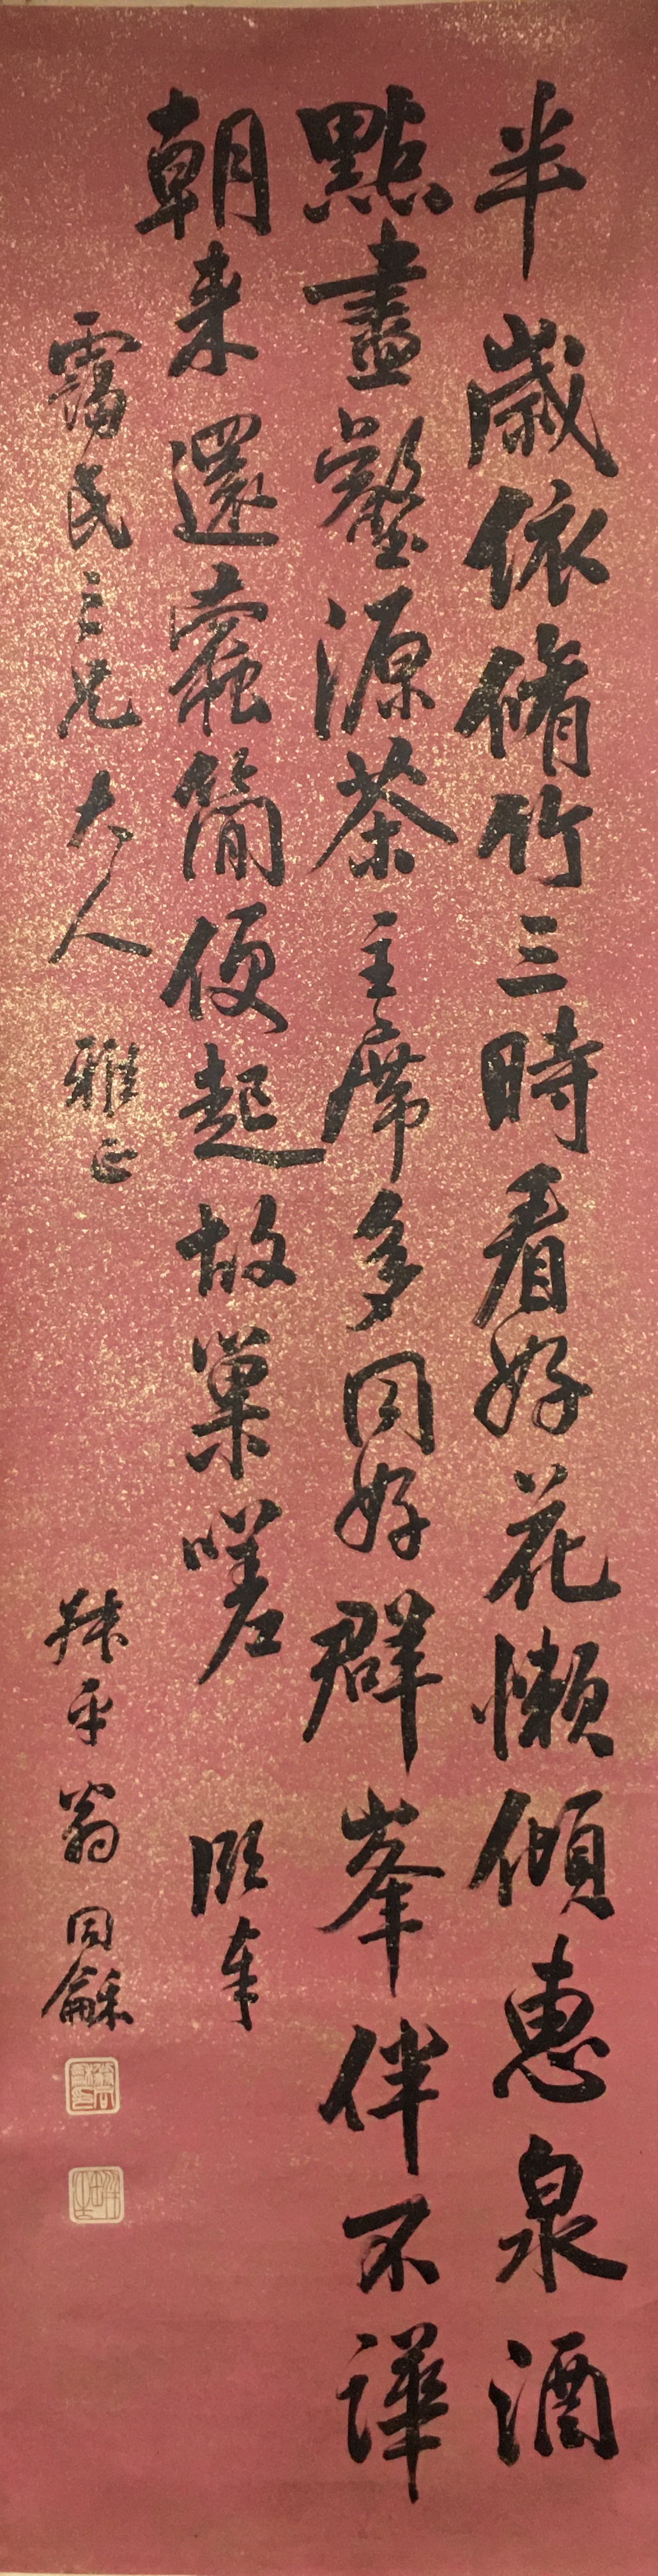 半歲依脩竹三時看好花懶傾惠泉酒
點盡壑源茶主席多同好群峯伴不譁
朝来還蠹簡便起故巢嗟
靄民三兄大人雅正
叔平翁同龢